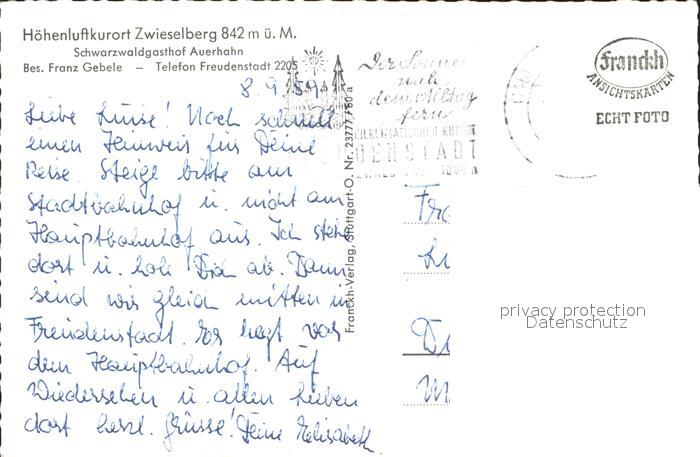 Höhenluftkurort Zwieselberg 842 m ü. M.
Schwarzwaldgasthof Auerhahn
Bes. Franz Gebele — Telefon Freudenstadt 2205
8.9.59.
Liebe Luise! Noch schnell
einen Hinweis für Deine
Reise. Steige bitte am
Stadtbahnhof u. nicht am
Hauptbahnhof aus. Ich stehe
dort u. hole Dich ab. Dann
sind wir gleich mitten in
Freudenstadt. Es liegt vor
dem Hauptbahnhof. Auf
Wiedersehen u. allen Lieben
dort herzl. Grüsse! Deine Elisabeth
Franckh-Verlag, Stuttgart-O, Nr. 23777/60 a
Der Sonne
nah
dem Alltag
fern
HEILKLIMATISCHER KURORT
UDENSTADT
Franckh
ANSICHTSKARTEN
ECHT FOTO
Fra
privacy protection
Datenschutz